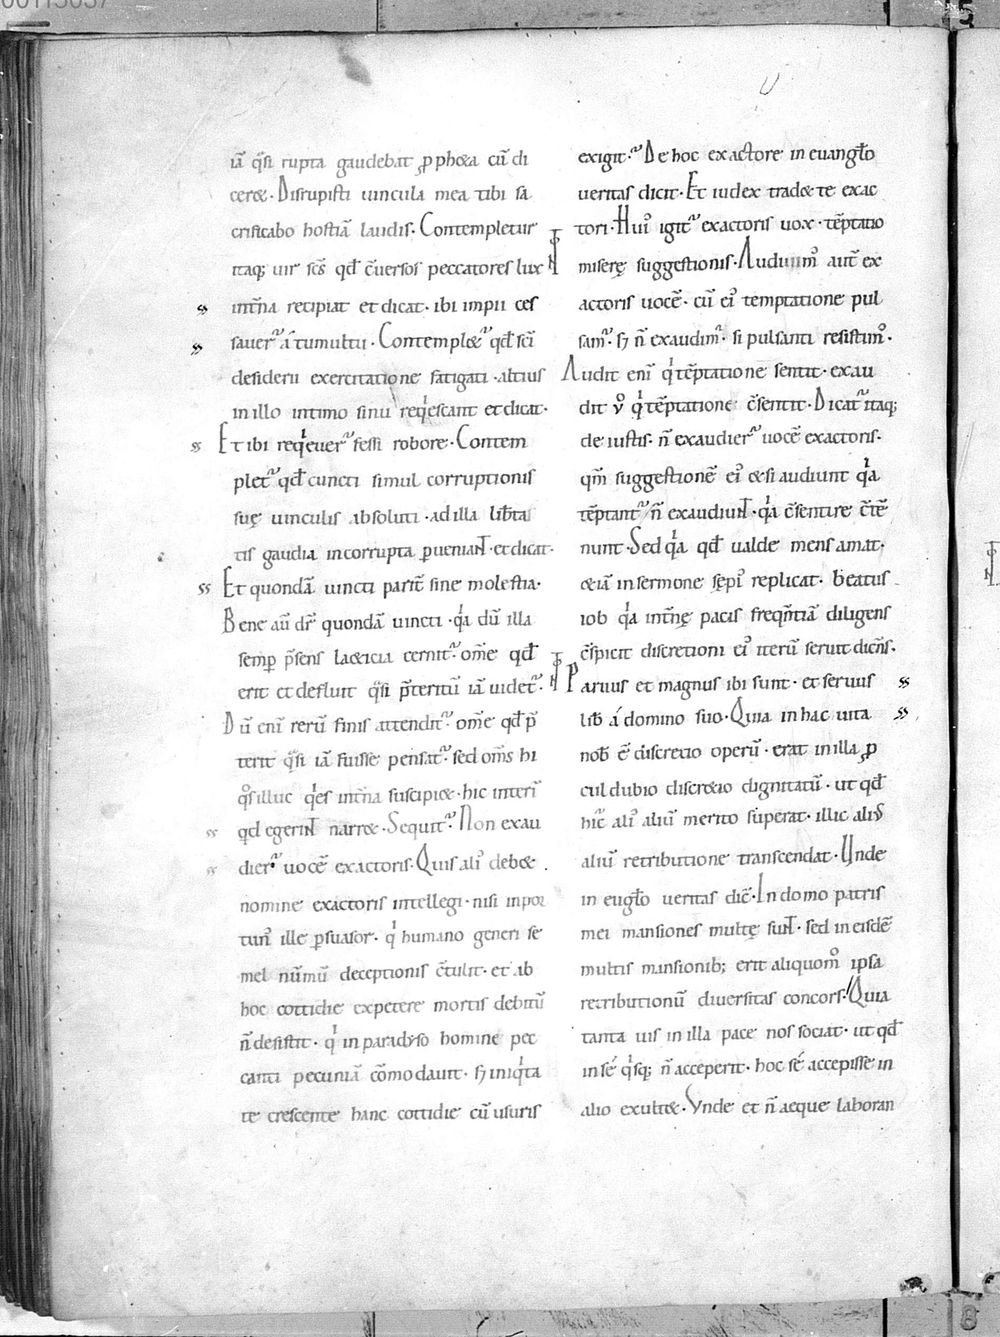 iā q̄si rupta gaudebat ꝓ pph&a cū di
cer&. Disrupisti uincula mea tibi sa
crificabo hostiā laudis. Contempletur
itaq; uir sc̄s qđ c̄uersos peccatores lux
int̄na recipiat et dicat. ibi impii ces
sauer᷑ á tumultu. Contempl&᷑ qđ sc̄i
desiderii exercitatione fatigati. altius
in illo intimo sinu reqͥescant et dicat.
Et ibi reqͥeuer᷑ fessi robore. Contem
plet᷑ qđ cuncti simul corruptionis
suę uinculis absoluti. ad illa lib̄ta
tis gaudia incorrupta ꝑueniant. et dicat.
Et quondā uincti parit̄ sine molestia.
Bene aū dr̄ quondā uincti. qͥa dū illa
semꝑ p̄sens la&icia cernit᷑. om̄e qđ
erit et defluit q̄si p̄teritū iā uidet᷑.
Dū enī rerū finis attendit᷑. om̄e qđ p̄
terit q̄si iā fuisse pensat᷑. sed om̄s hi
qͦs illuc qͥes int̄na suscipi&. hic interī
qđ egerint narr&. Sequit᷑. Non exau
dier᷑ uocē exactoris. Quis ali᷒ deb&
nomine exactoris intellegi. nisi inpor
tun᷒ ille ꝑsuasor. qͥ humano generi se
mel nūmū deceptionis c̄tulit. et ab
hoc cottidie expetere mortis debitū
n̄ desistit. qͥ in paradyso homine pec
canti pecuniā cōmodauit. sꝫ iniqͥta
te crescente hanc cottidie cū usuris
exigit᷑. De hoc exactore in euangło
ueritas dicit. Et iudex trad& te exac
tori. Hui᷒ igit᷑ exactoris uox. tēptatio
miserę suggestionis. Audiuim᷒ aut̄ ex
actoris uocē. cū ei᷒ temptatione pul
sam᷑. sꝫ n̄ exaudim᷒. si pulsanti resistim᷒.
Audit enī qͥ tēptatione sentit. exau
dit v̊ qͥ tēptatione c̄sentit. Dicat᷑ itaq;
de iustis. n̄ exaudier᷑ uocē exactoris.
qm̄ suggestionē ei᷒ &si audiunt qͥa
tēptant᷑ n̄ exaudiunt. qͥa c̄sentire c̄tē
nunt. Sed qͥa qđ ualde mens amat.
&iā in sermone sępi᷒ replicat. beatus
iob qͥa int̄nę pacis freqn̄tiā diligens
c̄spicit discretioni ei᷒ iterū seruit dicn̄s.
Paruus et magnus ibi sunt. et seruus
lib̄ á domino suo. Quia in hac uita
nob̄ ē discretio operū. erat in illa ꝓ
cul dubio discr&io dignitatū. ut qđ
hic̄ ali᷒ aliū merito superat. illic ali᷒
aliū retributione transcendat. Unde
in eugło ueritas dic̄. In domo patris
mei mansiones multę sunt. sed in eisdē
multis mansionib; erit aliquom̊ ipsa
retributionū diuersitas concors. Quia
tanta uis in illa pace nos sociat. ut qđ
in sé qͥsq; n̄ acceperit. hoc sé accepisse in
alio exult&. Vnde et n̄ aeque laboran